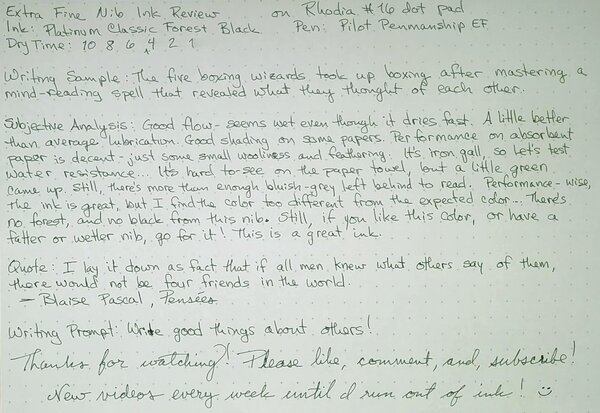 Extra Fine Nib Ink Review on Rhodia #16 dot pad
Ink: Platinum Classic Forest Black Pen: Pilot Penmanship EF
Dry Time: 10 8 6 4 2 1
Writing Sample: The five boxing wizards took up boxing after mastering a
mind-reading spell that revealed what they thought of each other.
Subjective Analysis: Good flow - seems wet even though it dries fast. A little better
than average lubrication. Good shading on some papers. Performance on absorbent
paper is decent - just some small wooliness and feathering. It's iron gall, so let's test
water resistance... It's hard to see on the paper towel, but a little green
came up. Still, there's more than enough bluish-grey left behind to read. Performance-wise,
the ink is great, but I find the color too different from the expected color... There's
no forest, and no black from this nib. Still, if you like this color, or have a
fatter or wetter nib, go for it! This is a great ink.
Quote: I lay it down as fact that if all men knew what others say of them,
there would not be four friends in the world.
- Blaise Pascal, Pensées
Writing Prompt: Write good things about others!
Thanks for watching! Please like, comment, and, subscribe!
New videos every week until I run out of ink! :)